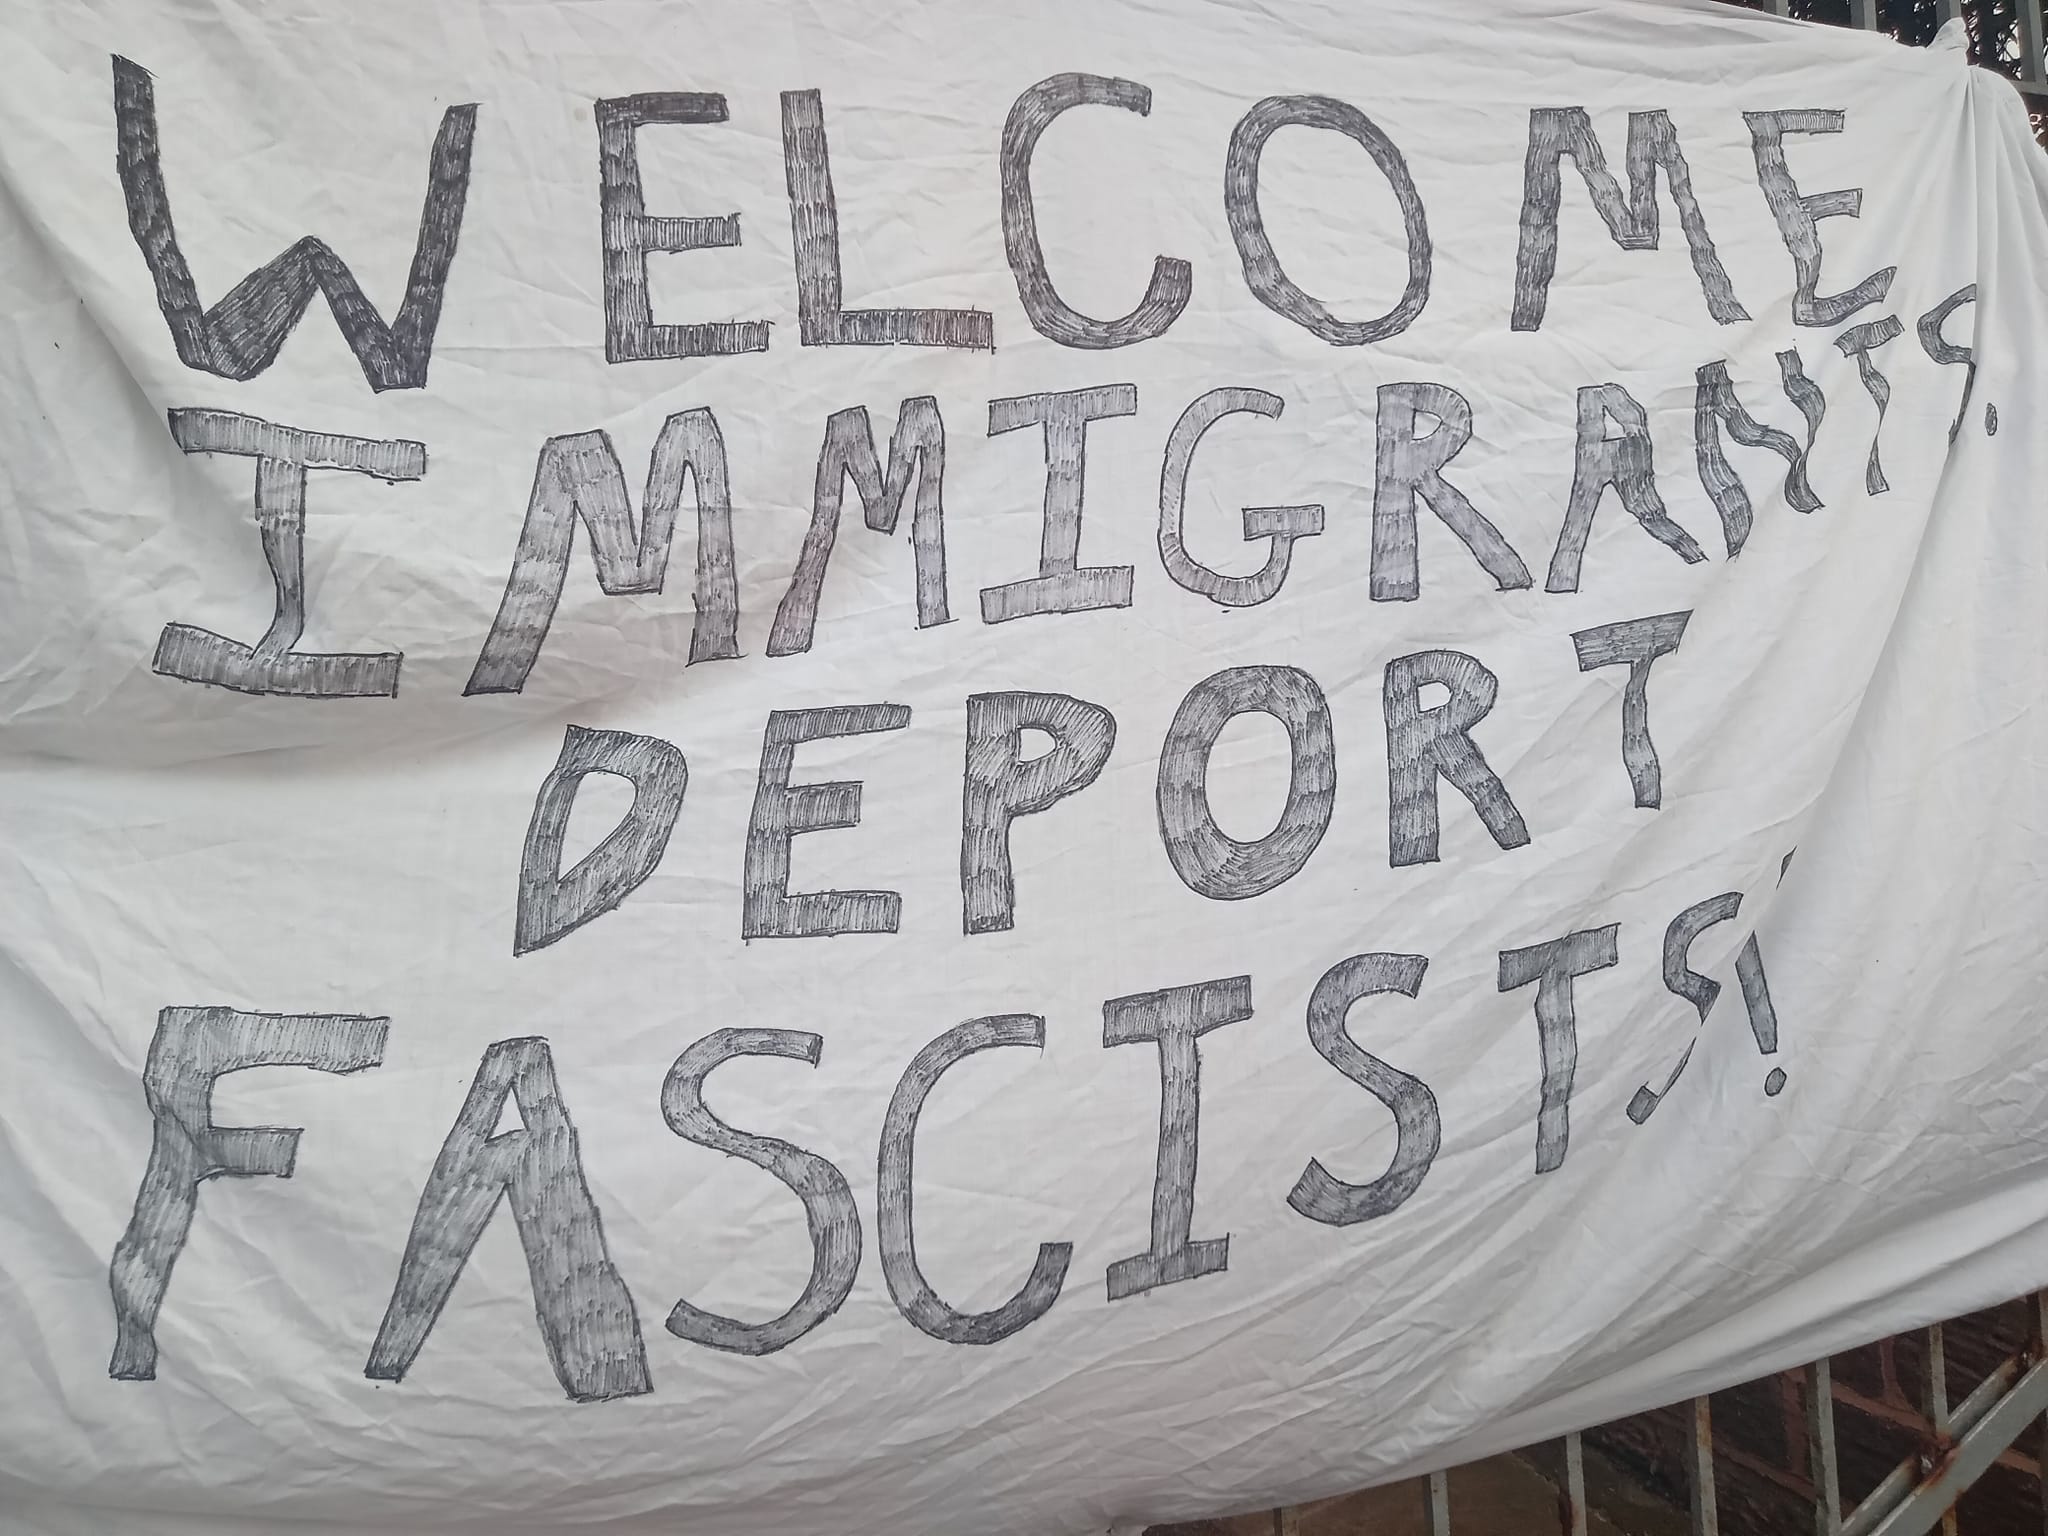 WELCOME
IMMIGRANTS.
DEPORT
FASCISTS!